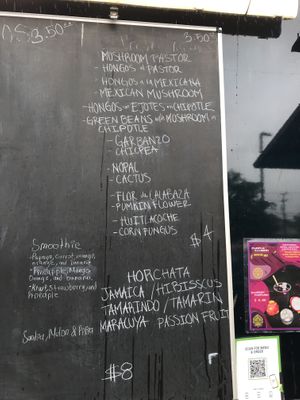 3.50
3.50
MUSHROOM PASTOR
- HONGOS al PASTOR
- HONGOS a la MEXICANA
- MEXICAN MUSHROOM
- HONGOS con EJOTES en CHIPOTLE
- GREEN BEANS with MUSHROOM in
CHIPOTLE
- GARBANZO
- CHICPEA
- NOPAL
- CACTUS
- FLOR de CALABAZA
- PUMKIN FLOWER
- HUITLACOCHE
- CORN FUNGUS
$4
Smoothie
- Papaya, Carrot, orange,
- Pineapple, Mango,
Orange, and banana
Strawberry, and
Pineapple
Sandia, Melon & Piña
HORCHATA
JAMAICA / HIBISCUS
TAMARINDO / TAMARIN
MARACUYA PASSION FRUIT
$8